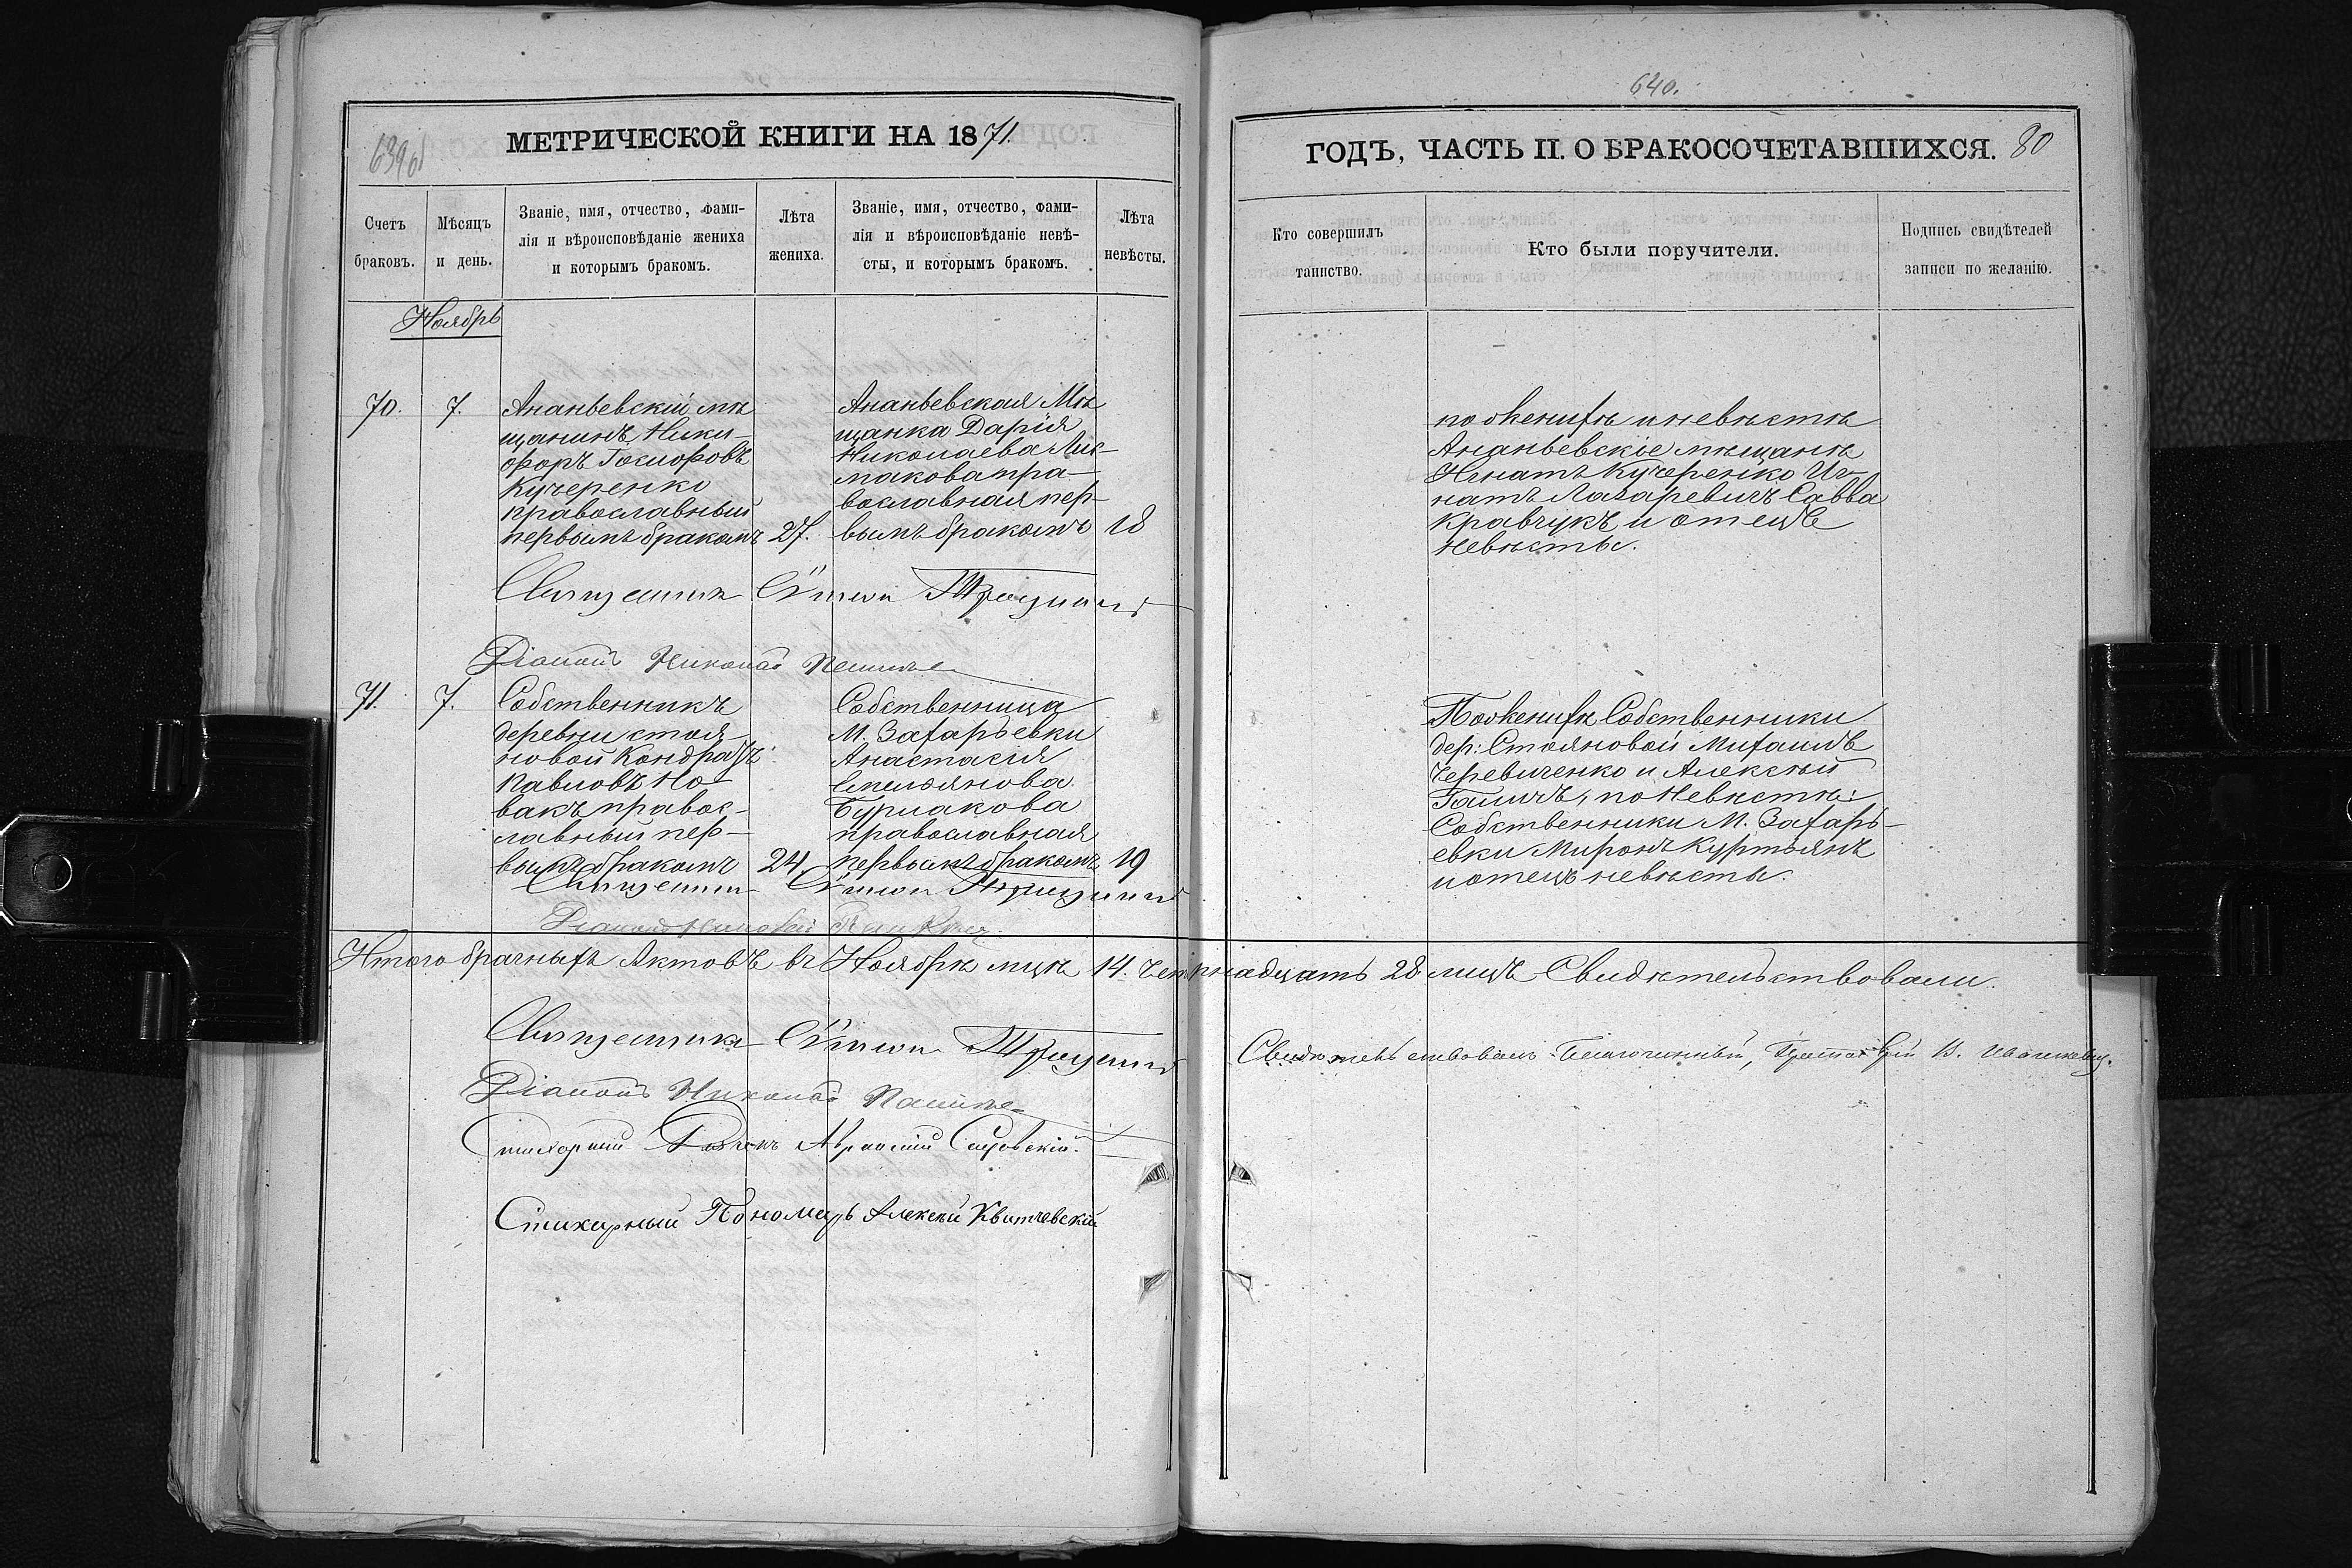 639об
МЕТРИЧЕСКОЙ КНИГИ НА 1871.
Счетъ
браковъ.
Мѣсяцъ
и день.
Званіе, имя, отчество, фами-
лія и вѣроисповѣданіе жениха
и которымъ бракомъ.
Лѣта
жениха.
Званіе, имя, отчество, фами-
лія и вѣроисповѣданіе невѣ-
сты, и которымъ бракомъ.
Лѣта
невѣсты.
Ноябрь
70.
7.
Ананьевскій мѣ
щанинъ Ники-
форъ
Кучеренко
православный
первымъ бракомъ
27.
Ананьевская Мѣ
щанка Дарія
Николаева Лис-
макова пра-
вославная пер-
вымъ бракомъ
18
Священникъ Симеон
Діаконъ Николай
71.
7.
Собственникъ
деревни Стоя-
новой Кондратъ
Павловъ Но-
вакъ правос-
лавный пер-
вымъ бракомъ
24
Собственница
М. Захарьевки
Анастасія
Емельянова
Бурлакова
православная
первымъ бракомъ
19
Священникъ Симеон
Діаконъ Николай
Итого брачныхъ Актовъ въ Ноябрѣ мцѣ 14. четырнадцать 28 лицъ Свидѣтельствовали.
Священникъ Симеон
Діаконъ Николай
Стихарный Дьячекъ
Стихарный Пономарь Алексѣй Квитчевскій
640.
ГОДЪ, ЧАСТЬ II. О БРАКОСОЧЕТАВШИХСЯ. 80
Кто совершилъ
таинство.
Кто были поручители.
Подпись свидѣтелей
записи по желанію.
по женихѣ и невѣстѣ
Ананьевскіе мѣщанѣ
Игнатъ Кучеренко Иг-
натъ Лазаревичъ Савва
Кравчукъ и отецъ
невѣсты.
По женихѣ Собственники
дер: Стояновой Михаилъ
Черевиченко и Алексѣй
Галичъ, по Невѣстѣ:
Собственники М. Захарь-
евки Миронъ Куртьянъ
и отецъ невѣсты.
Свидѣтельствовалъ Благочинный, Протоіерей